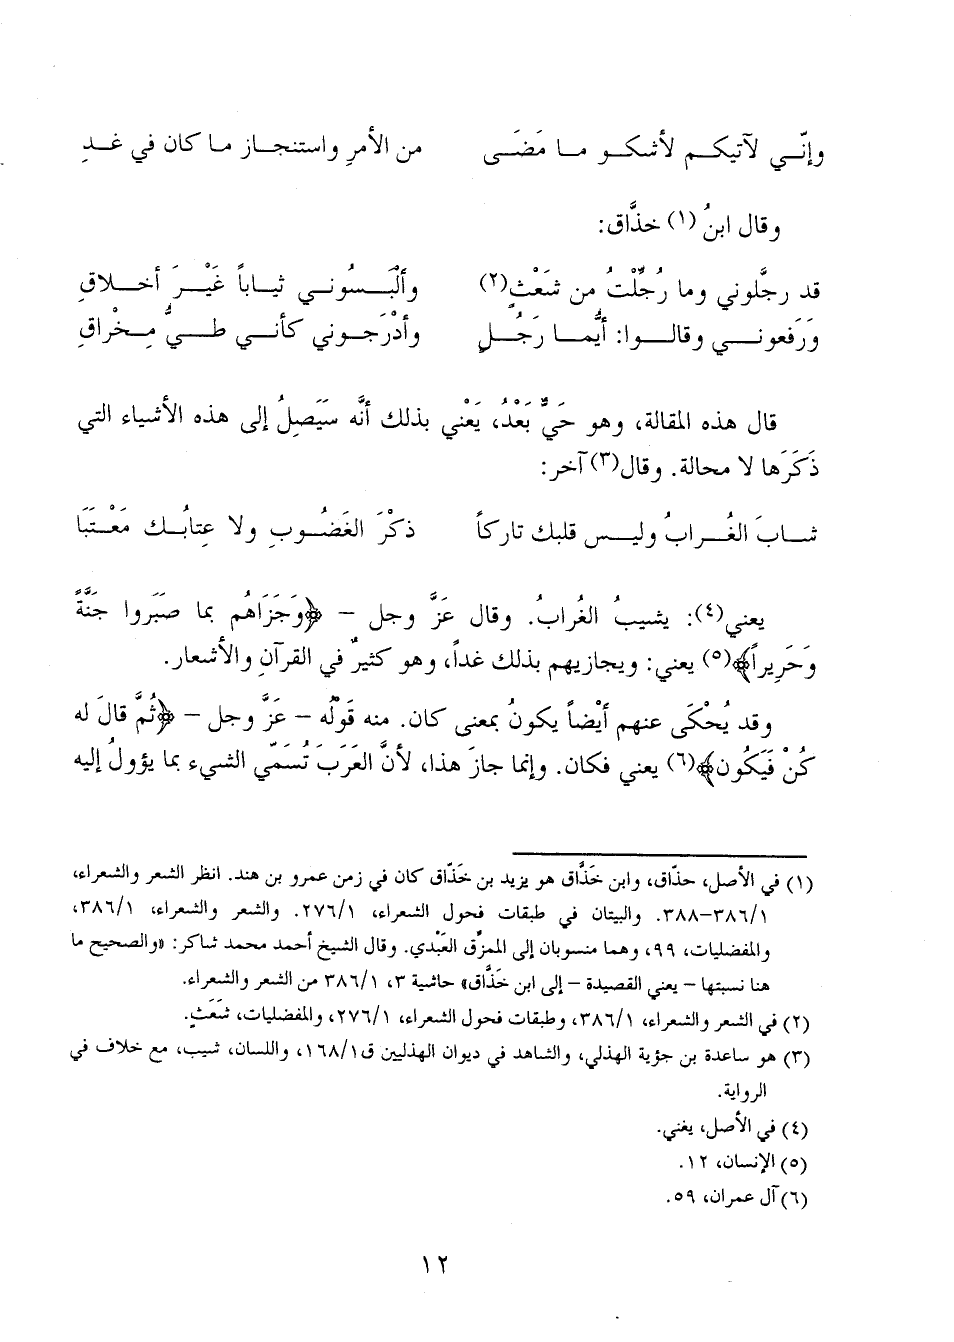 وإنّـي لآتيكـم لأشكـو مـا مَضَـى من الأمرِ واستنجـاز مـا كان في غـدِ
وقال ابنُ (١) خذَّاق:
قد رجَّلوني وما رُجِّلْتُ من شَعْثٍ(٢) وألْبَـسُونـي ثيـاباً غَيْـرَ أخـلاقِ
وَرَفعونـي وقالـوا: أيُّمـا رَجُـلٍ وأدْرَجـوني كأنـي طـيُّ مِـخْراقِ
قال هذه المقالة، وهو حَيٌّ بَعْدُ، يَعْني بذلك أنَّه سَيَصِلُ إلى هذه الأشياء التي
ذَكَرَها لا محالة. وقال(٣) آخر:
شـابَ الغُـرابُ وليـس قلبك تاركاً ذكْرَ الغَضُـوبِ ولا عِتابُـك مَعْـتَبَا
يعني(٤): يشيبُ الغُرابُ. وقال عَزَّ وجل – ﴿وَجَزَاهُم بما صَبَروا جَنَّةً
وَحَرِيراً﴾(٥) يعني: ويجازيهم بذلك غداً، وهو كثيرٌ في القرآنِ والأشعار.
وقد يُحْكَى عنهم أيْضاً يكونُ بمعنى كان. منه قَولُه – عَزَّ وجل – ﴿ثُمَّ قالَ له
كُنْ فَيَكُون﴾(٦) يعني فكان. وإنما جازَ هذا، لأنَّ العَرَبَ تُسَمّي الشيءَ بما يؤولُ إليه
(١) في الأصل، حذّاق، وابن خَذَّاق هو يزيد بن خَذّاق كان في زمن عمرو بن هند. انظر الشعر والشعراء،
٣٨٦/١–٣٨٨. والبيتان في طبقات فحول الشعراء، ٢٧٦/١. والشعر والشعراء، ٣٨٦/١،
والمفضليات، ٩٩، وهما منسوبان إلى الممزّق العَبْدي. وقال الشيخ أحمد محمد شاكر: «والصحيح ما
هنا نسبتها – يعني القصيدة – إلى ابن خَذَّاق» حاشية ٣، ٣٨٦/١ من الشعر والشعراء.
(٢) في الشعر والشعراء، ٣٨٦/١، وطبقات فحول الشعراء، ٢٧٦/١، والمفضليات، شَعَثٍ.
(٣) هو ساعدة بن جؤية الهذلي، والشاهد في ديوان الهذليين ق١٦٨/١، واللسان، شيب، مع خلاف في
الرواية.
(٤) في الأصل، يغني.
(٥) الإنسان، ١٢.
(٦) آل عمران، ٥٩.
١٢